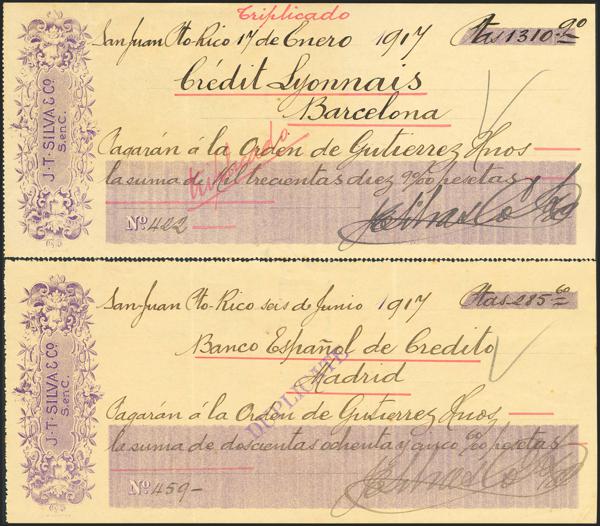 Triplicado
San Juan Pto-Rico 17 de Enero 1917 Ptas 1310.90
Crédit Lyonnais
Barcelona
J.T. SILVA & Co.
S. en C.
Pagarán á la Orden de Gutierrez Hnos
triplicado
la suma de Mil trecientas diez 90/00 pesetas
No. 422
San Juan Pto-Rico seis de Junio 1917 Ptas 285.60
Banco Español de Credito
Madrid
DUPLICATE
J.T. SILVA & Co.
S. en C.
Pagarán á la Orden de Gutierrez Hnos
la suma de doscientas ochenta y cinco 60/00 pesetas
No. 459-